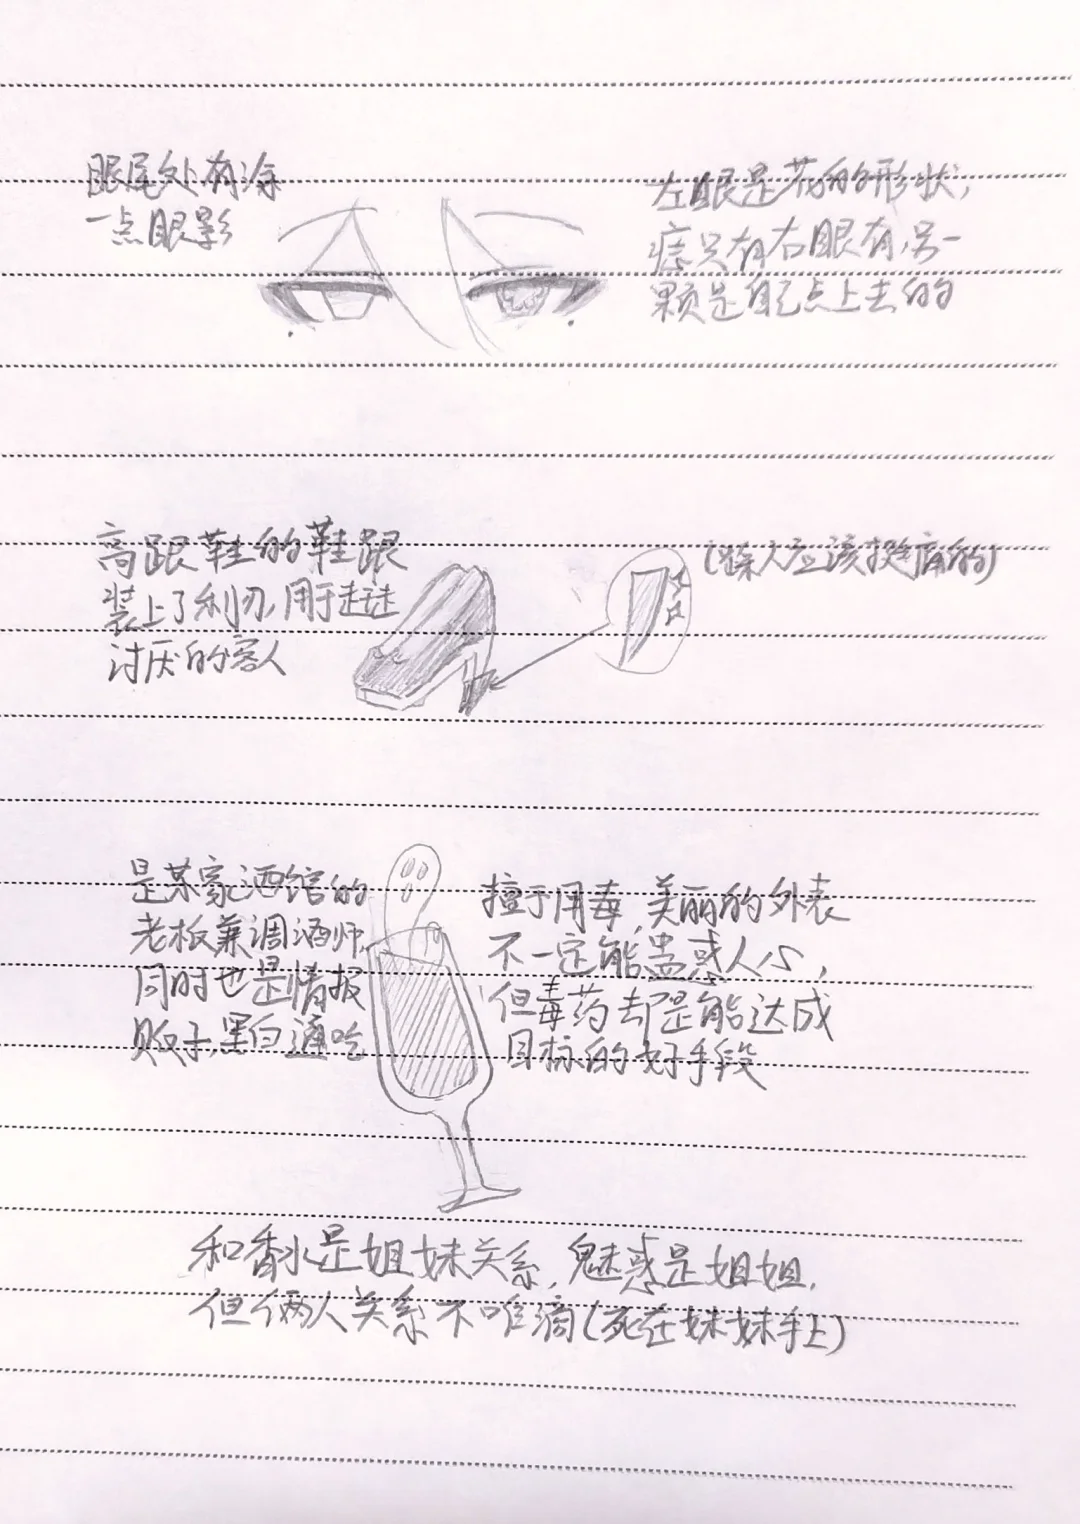 眼尾处有涂
一点眼影
左眼是花的形状，
痣只有右眼有，另一
颗是自己点上去的
高跟鞋的鞋跟
装上了利刃，用于赶走
讨厌的客人
（踩人应该挺痛的）
是某家酒馆的
老板兼调酒师，
同时也是情报
贩子，黑白通吃
擅于用毒，美丽的外表
不一定能蛊惑人心，
但毒药却是能达成
目标的好手段
和香水是姐妹关系，魅惑是姐姐，
但俩人关系不咋滴（死在妹妹手上）